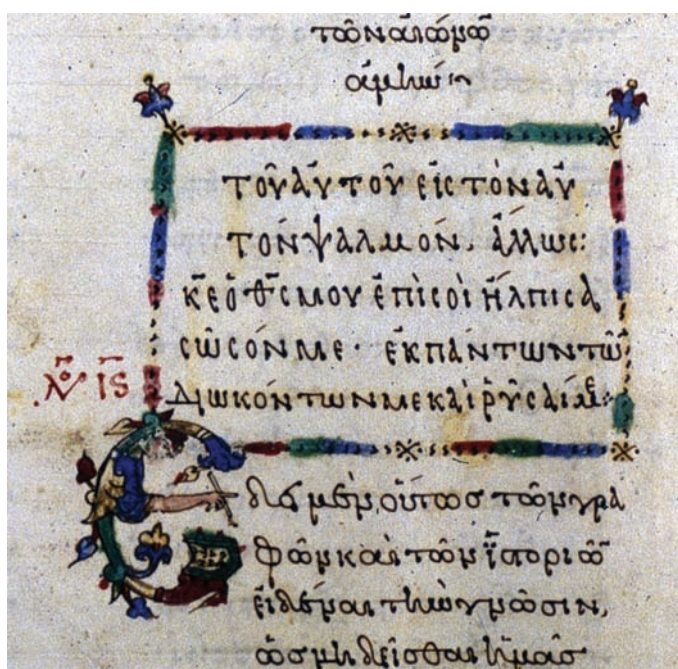 τῶν αἰώνων
ἀμήν:
τοῦ αὐτοῦ εἰς τὸν αὐ
τὸν ψαλμὸν, ἄλλως:
κ̅ε̅ ὁ θ̅ς̅ μου ἐπὶ σοὶ ἤλπισα
σῶσόν με · ἐκ πάντων τῶ̅
διωκόντων με καὶ ῥῦσαί με:
ιϛ
Ἔδει μὲν οὕτως τῶν γρα
φῶν καὶ τῶν ἱστοριῶ̅
εἰδέναι τὴν γνῶσιν,
ὡς μὴ δεῖσθαι ἡμᾶς